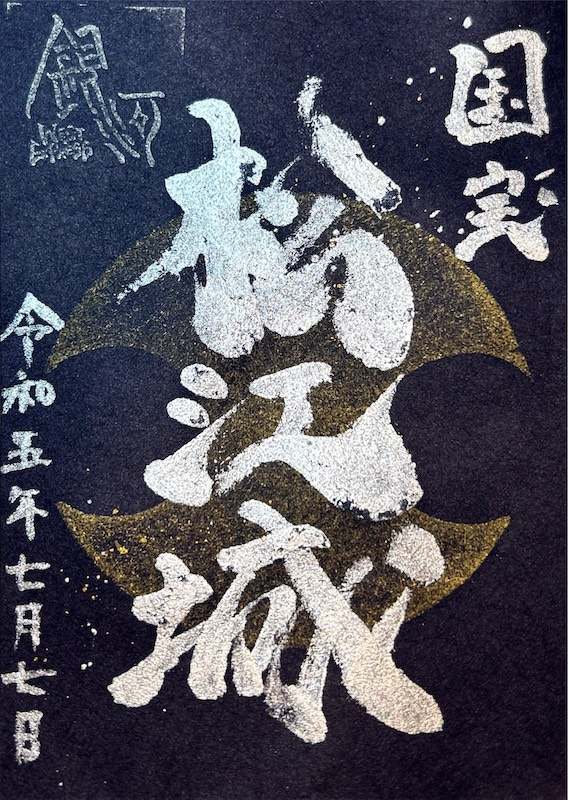 国宝
松江城
令和五年七月七日
銀河